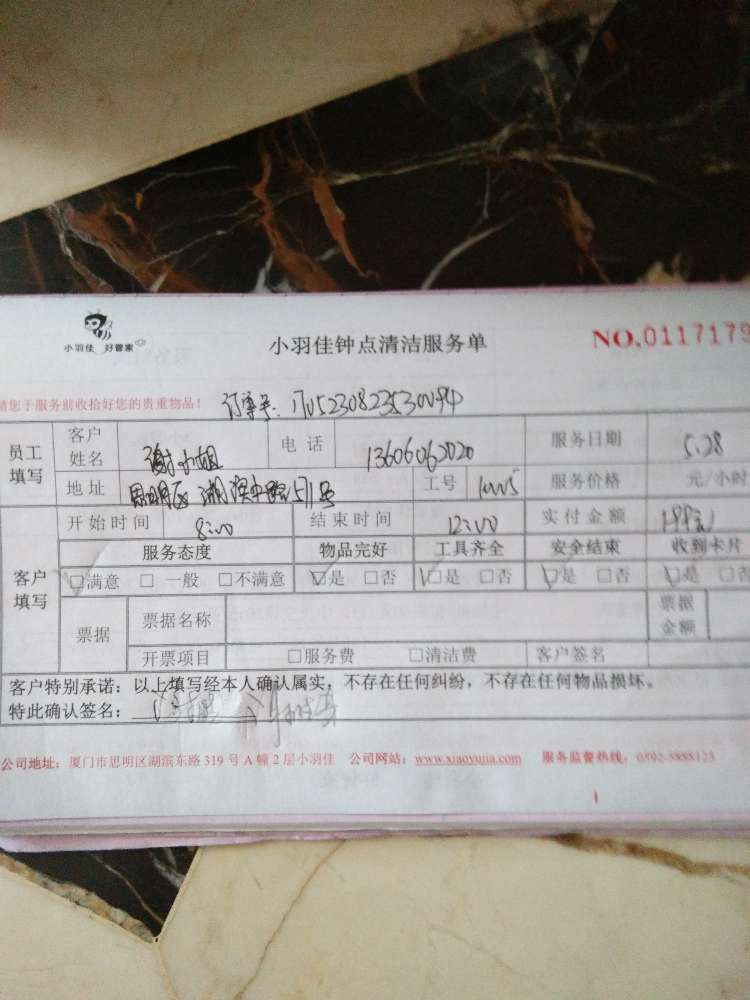 小羽佳 好管家
小羽佳钟点清洁服务单
NO.0117179
请您于服务前收拾好您的贵重物品！ 订单号：
员工填写 客户姓名 谢小姐 电话 13606062020 服务日期 5.28
地址 思明区湖滨中路571号 工号 服务价格 元/小时
客户填写 开始时间 8:00 结束时间 12:00 实付金额 199元
服务态度 物品完好 工具齐全 安全结束 收到卡片
□满意 □一般 □不满意 □是 □否 □是 □否 □是 □否 □是 □否
票据 票据名称 票据金额
开票项目 □服务费 □清洁费 客户签名
客户特别承诺：以上填写经本人确认属实，不存在任何纠纷，不存在任何物品损坏。
特此确认签名：
公司地址：厦门市思明区湖滨东路 319 号 A 幢 2 层小羽佳 公司网站：www.xiaoyujia.com 服务监督热线：0592-5888123